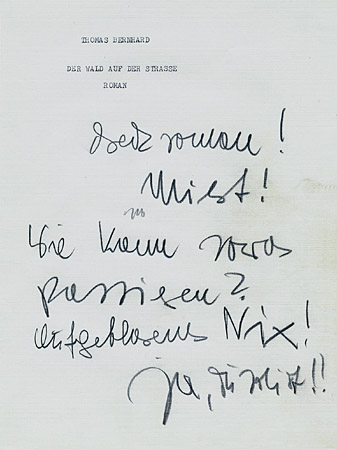 THOMAS BERNHARD
DER WALD AUF DER STRASSE
ROMAN
Dreckroman!
Mist!
Wie kann sowas
passieren?
Aufgeblasenes Nix!
ja,